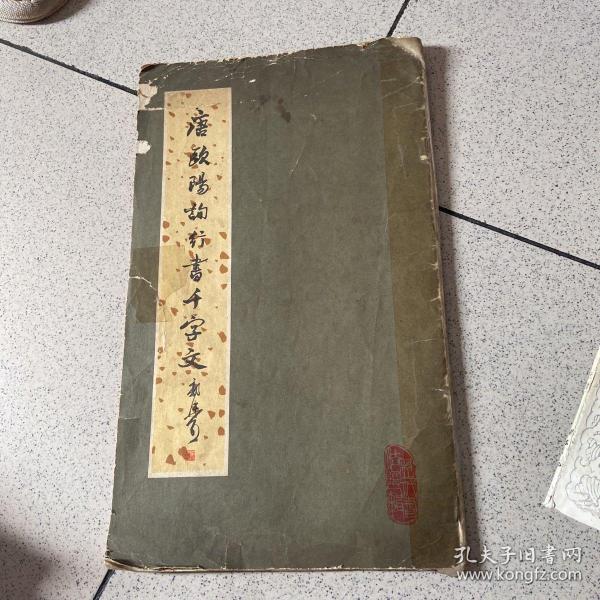 唐欧陽询行書千字文
孔夫子旧書网
www.kongfz.com